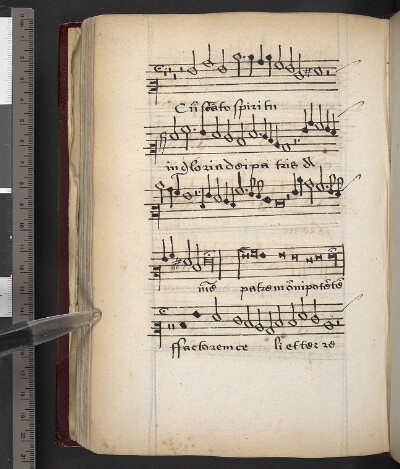 Cū sc̄ato spiritu
in gloria dei pa tris A
mē patrem om̄ipotētē
ffactorem ce li et ter re